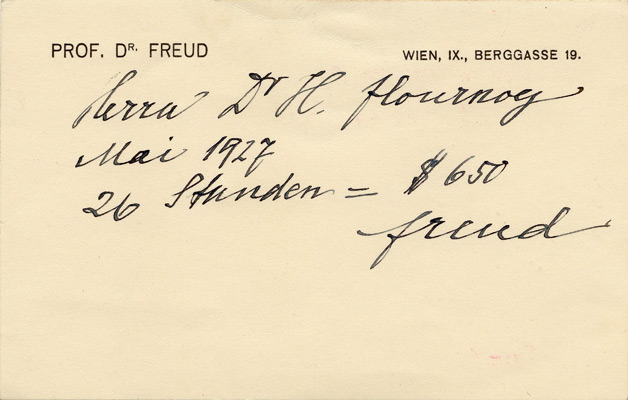 PROF. DR. FREUD
WIEN, IX., BERGGASSE 19.
Herrn Dr H. Flournoy
Mai 1927
26 Stunden = $ 650
Freud